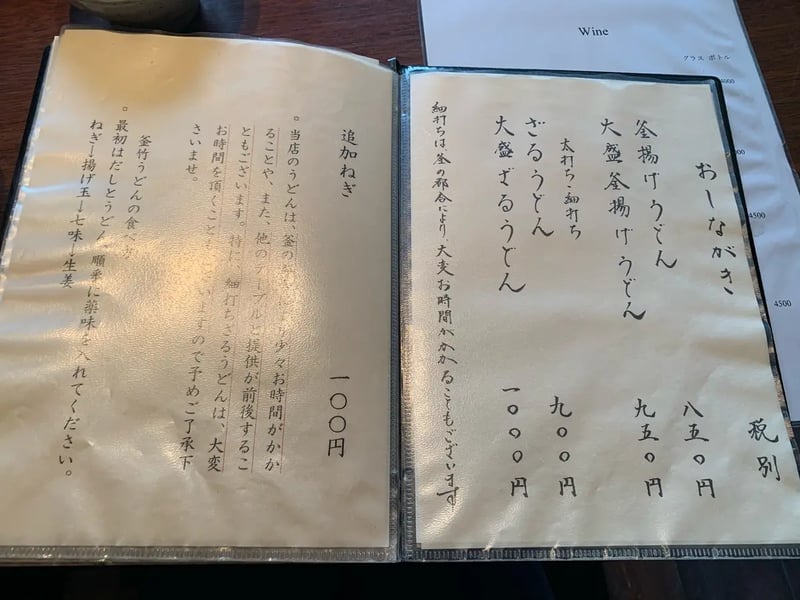 おしながき
税別
釜揚げうどん 八五〇円
大盛釜揚げうどん 九五〇円
太打ち・細打ち
ざるうどん 九〇〇円
大盛ざるうどん 一〇〇〇円
細打ちは、釜の都合により、大変お時間がかかることもございます
追加ねぎ 一〇〇円
。当店のうどんは、釜の より少々お時間がかか
ることや、また、他のテーブルと提供が前後するこ
ともございます。特に、細打ちざるうどんは、大変
お時間を頂くことも いますので予めご了承下
さいませ。
釜竹うどんの食べ方
。最初はだしとうどん 順番に薬味を入れてください。
ねぎ→揚げ玉→七味→生姜
Wine
グラス ボトル
4500
4500